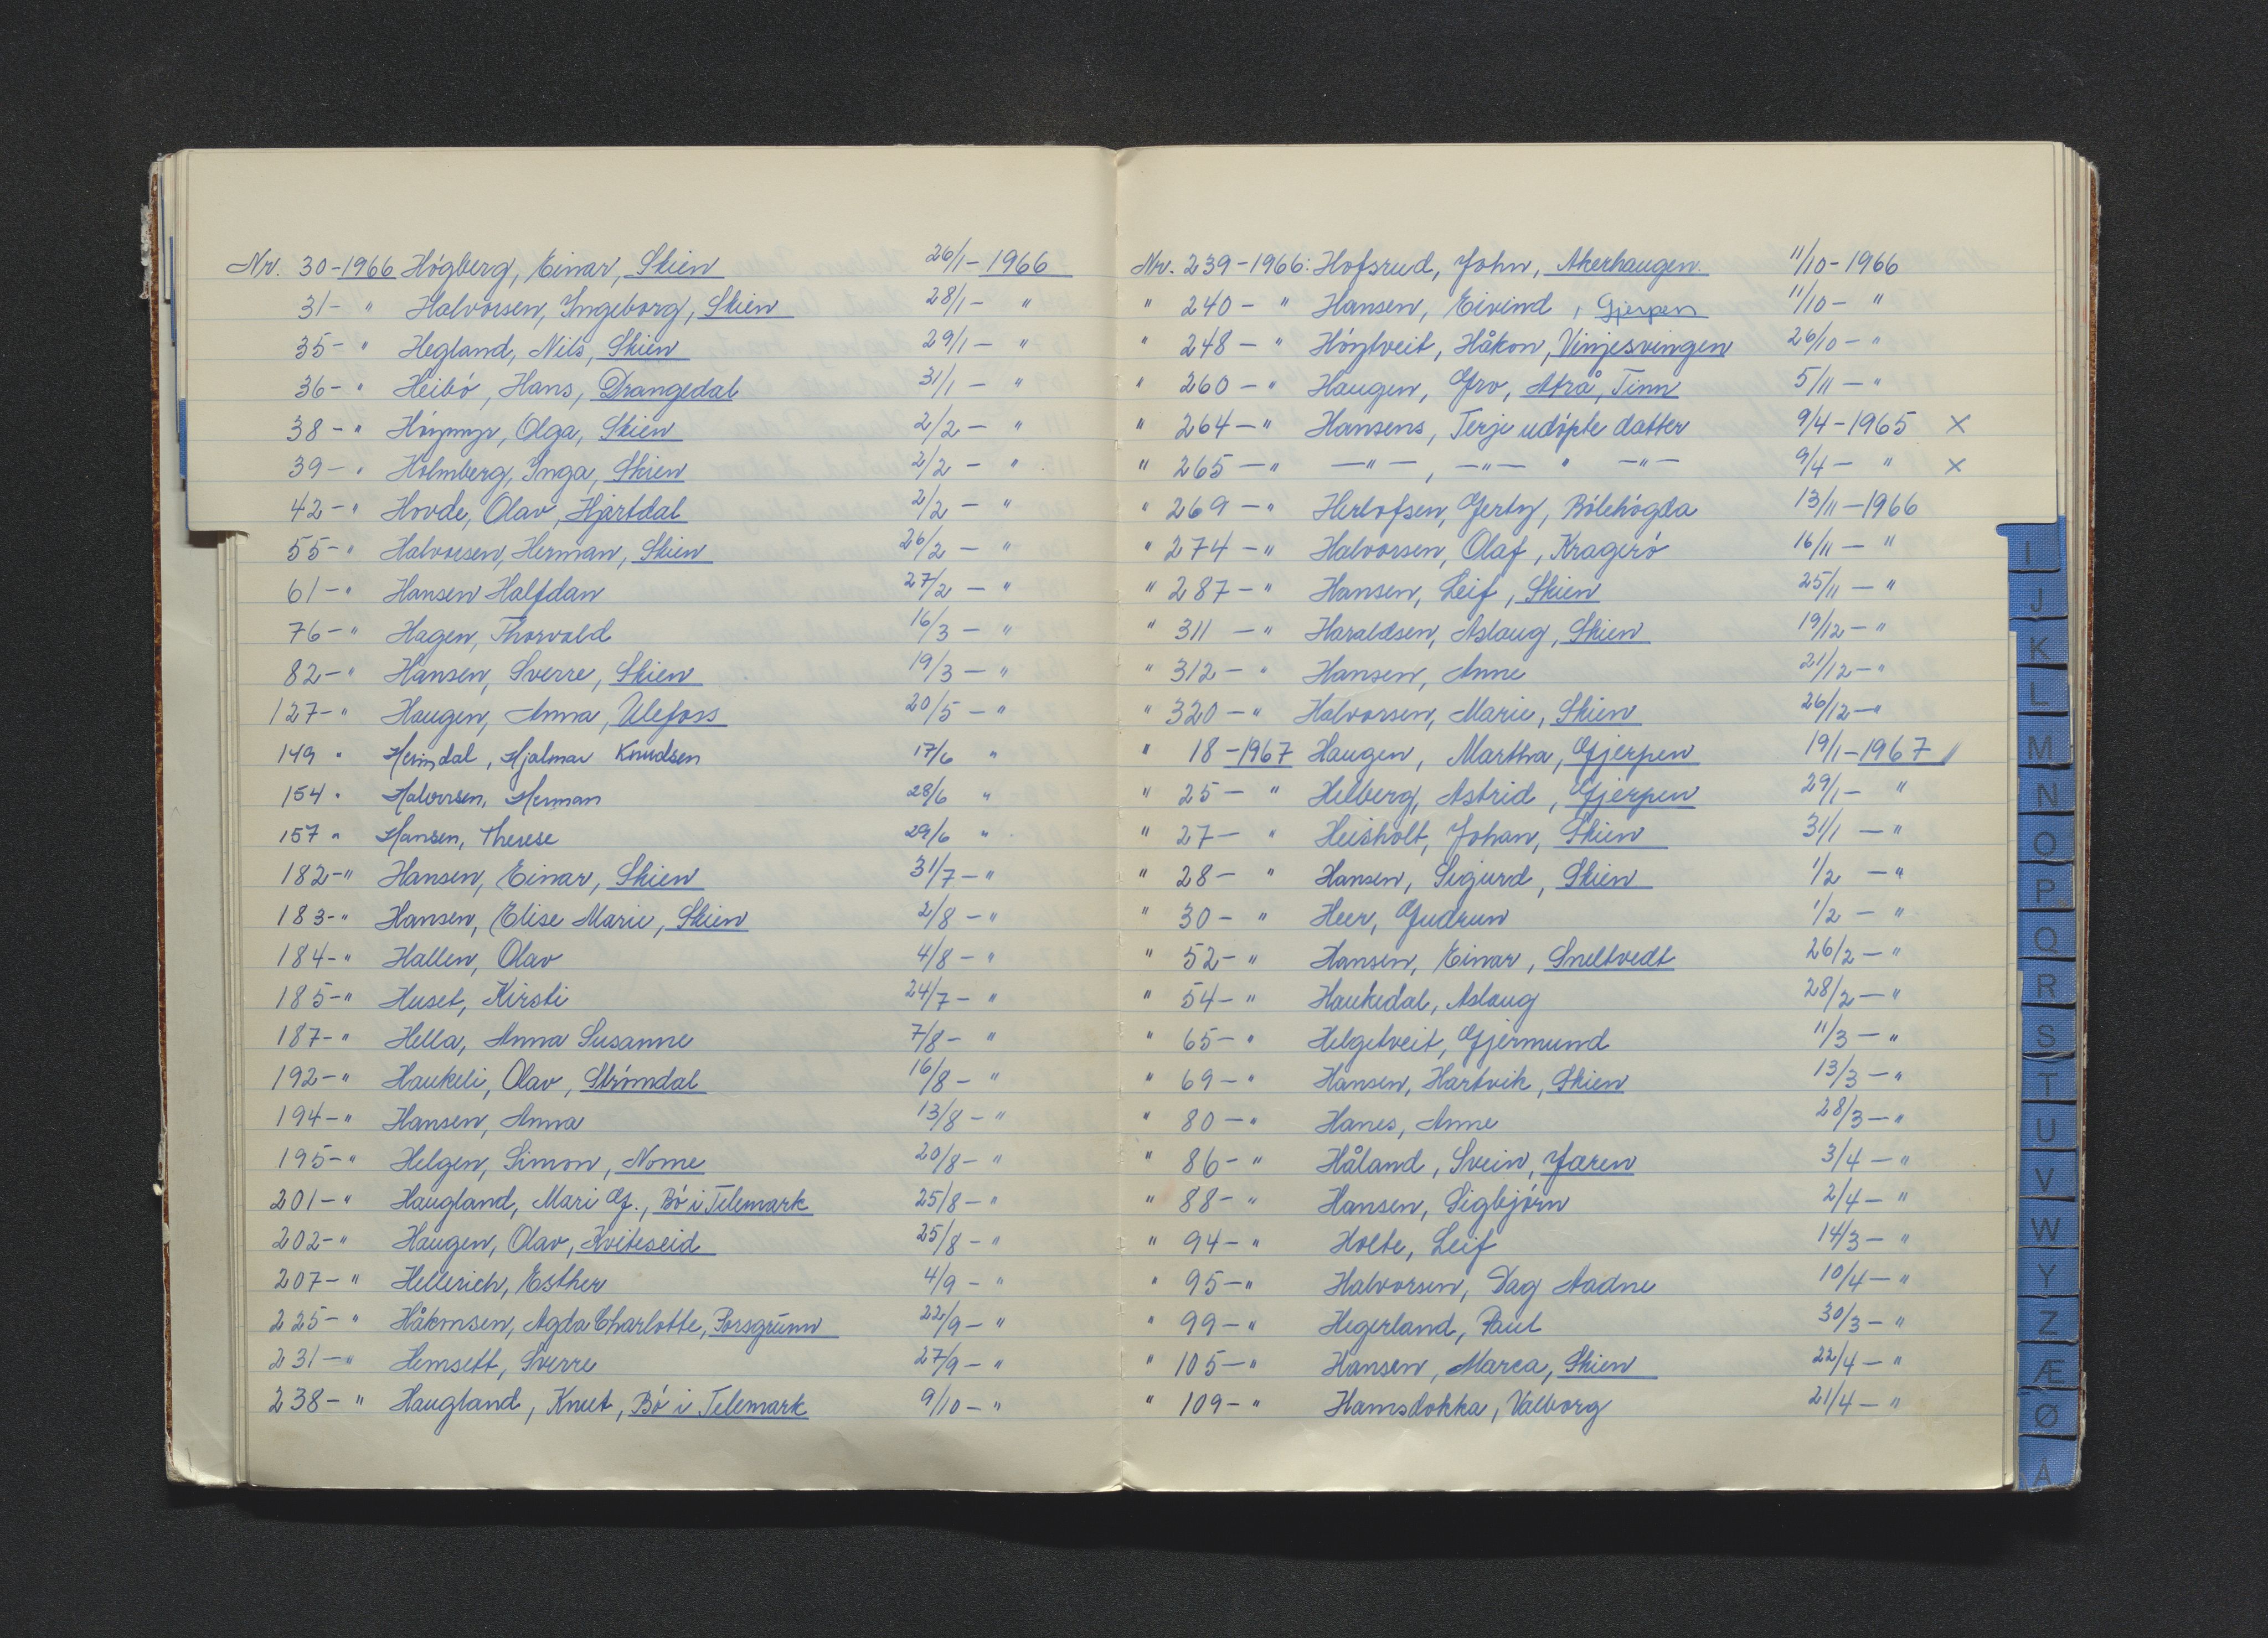 Nr. 30-1966 Högberg, Einar, Skien 26/1-1966
31- " Halvorsen, Ingeborg, Skien 28/1- "
35- " Hegland, Nils, Skien 29/1- "
36- " Heibö, Hans, Drangedal 31/1- "
38- " Höymyr, Olga, Skien 2/2- "
39- " Holmberg, Inga, Skien 2/2- "
42- " Hovde, Olav, Hjartdal 2/2- "
55- " Halvorsen, Herman, Skien 26/2- "
61- " Hansen Halfdan 27/2- "
76- " Hagen, Thorvald 16/3- "
82- " Hansen, Sverre, Skien 19/3- "
127- " Haugen, Anna, Ulefoss 20/5- "
149 " Heimdal, Hjalmar Knudsen 17/6 "
154 " Halvorsen, Herman 28/6 "
157 " Hansen, Therese 29/6 "
182- " Hansen, Einar, Skien 31/7- "
183- " Hansen, Elise Marie, Skien 2/8- "
184- " Hallen, Olav 4/8- "
185- " Huset, Kirsti 24/7- "
187- " Hella, Anna Susanne 7/8- "
192- " Haukeli, Olav, Strömdal 16/8- "
194- " Hansen, Anna 13/8- "
195- " Helgen, Simon, Nome 20/8- "
201- " Haugland, Mari G., Bö i Telemark 25/8- "
202- " Haugen, Olav, Kviteseid 25/8- "
207- " Hellerich, Esther 4/9- "
225- " Håkonsen, Agda Charlotte, Porsgrunn 22/9- "
231- " Hemsett, Sverre 27/9- "
238- " Haugland, Knut, Bö i Telemark 9/10- "
Nr. 239-1966: Hofsrud, John, Akerhaugen. 11/10-1966
" 240- " Hansen, Eivind, Gjerpen 11/10- "
" 248- " Höytveit, Håkon, Vinjesvingen 26/10- "
" 260- " Haugen, Gro, Atrå, Tinn 5/11- "
" 264- " Hansens, Terje udöpte datter 9/4-1965 x
" 265- " -"-, -"- " -"- 9/4- " x
" 269- " Herlofsen, Gerty, Bölehögda 13/11-1966
" 274- " Halvorsen, Olaf, Kragerö 16/11- "
" 287- " Hansen, Leif, Skien 25/11- "
" 311- " Haraldsen, Aslaug, Skien 19/12- "
" 312- " Hansen, Anne 21/12- "
" 320- " Halvorsen, Marie, Skien 26/12- "
" 18-1967 Haugen, Martha, Gjerpen 19/1-1967
" 25- " Helberg, Astrid, Gjerpen 29/1- "
" 27- " Heisholt, Johan, Skien 31/1- "
" 28- " Hansen, Sigurd, Skien 1/2- "
" 30- " Heer, Gudrun 1/2- "
" 52- " Hansen, Einar, Sneltvedt 26/2- "
" 54- " Haukedal, Aslaug 28/2- "
" 65- " Helgetveit, Gjermund 11/3- "
" 69- " Hansen, Hartvik, Skien 13/3- "
" 80- " Hanes, Anne 28/3- "
" 86- " Håland, Svein, Jæren 3/4- "
" 88- " Hansen, Sigbjörn 2/4- "
" 94- " Holte, Leif 14/3- "
" 95- " Halvorsen, Dag Aadne 10/4- "
" 99- " Hegerland, Paul 30/3- "
" 105- " Hansen, Marea, Skien 22/4- "
" 109- " Hamsdokka, Valborg 21/4- "
I
J
K
L
M
N
O
P
Q
R
S
T
U
V
W
Y
Z
Æ
Ø
Å